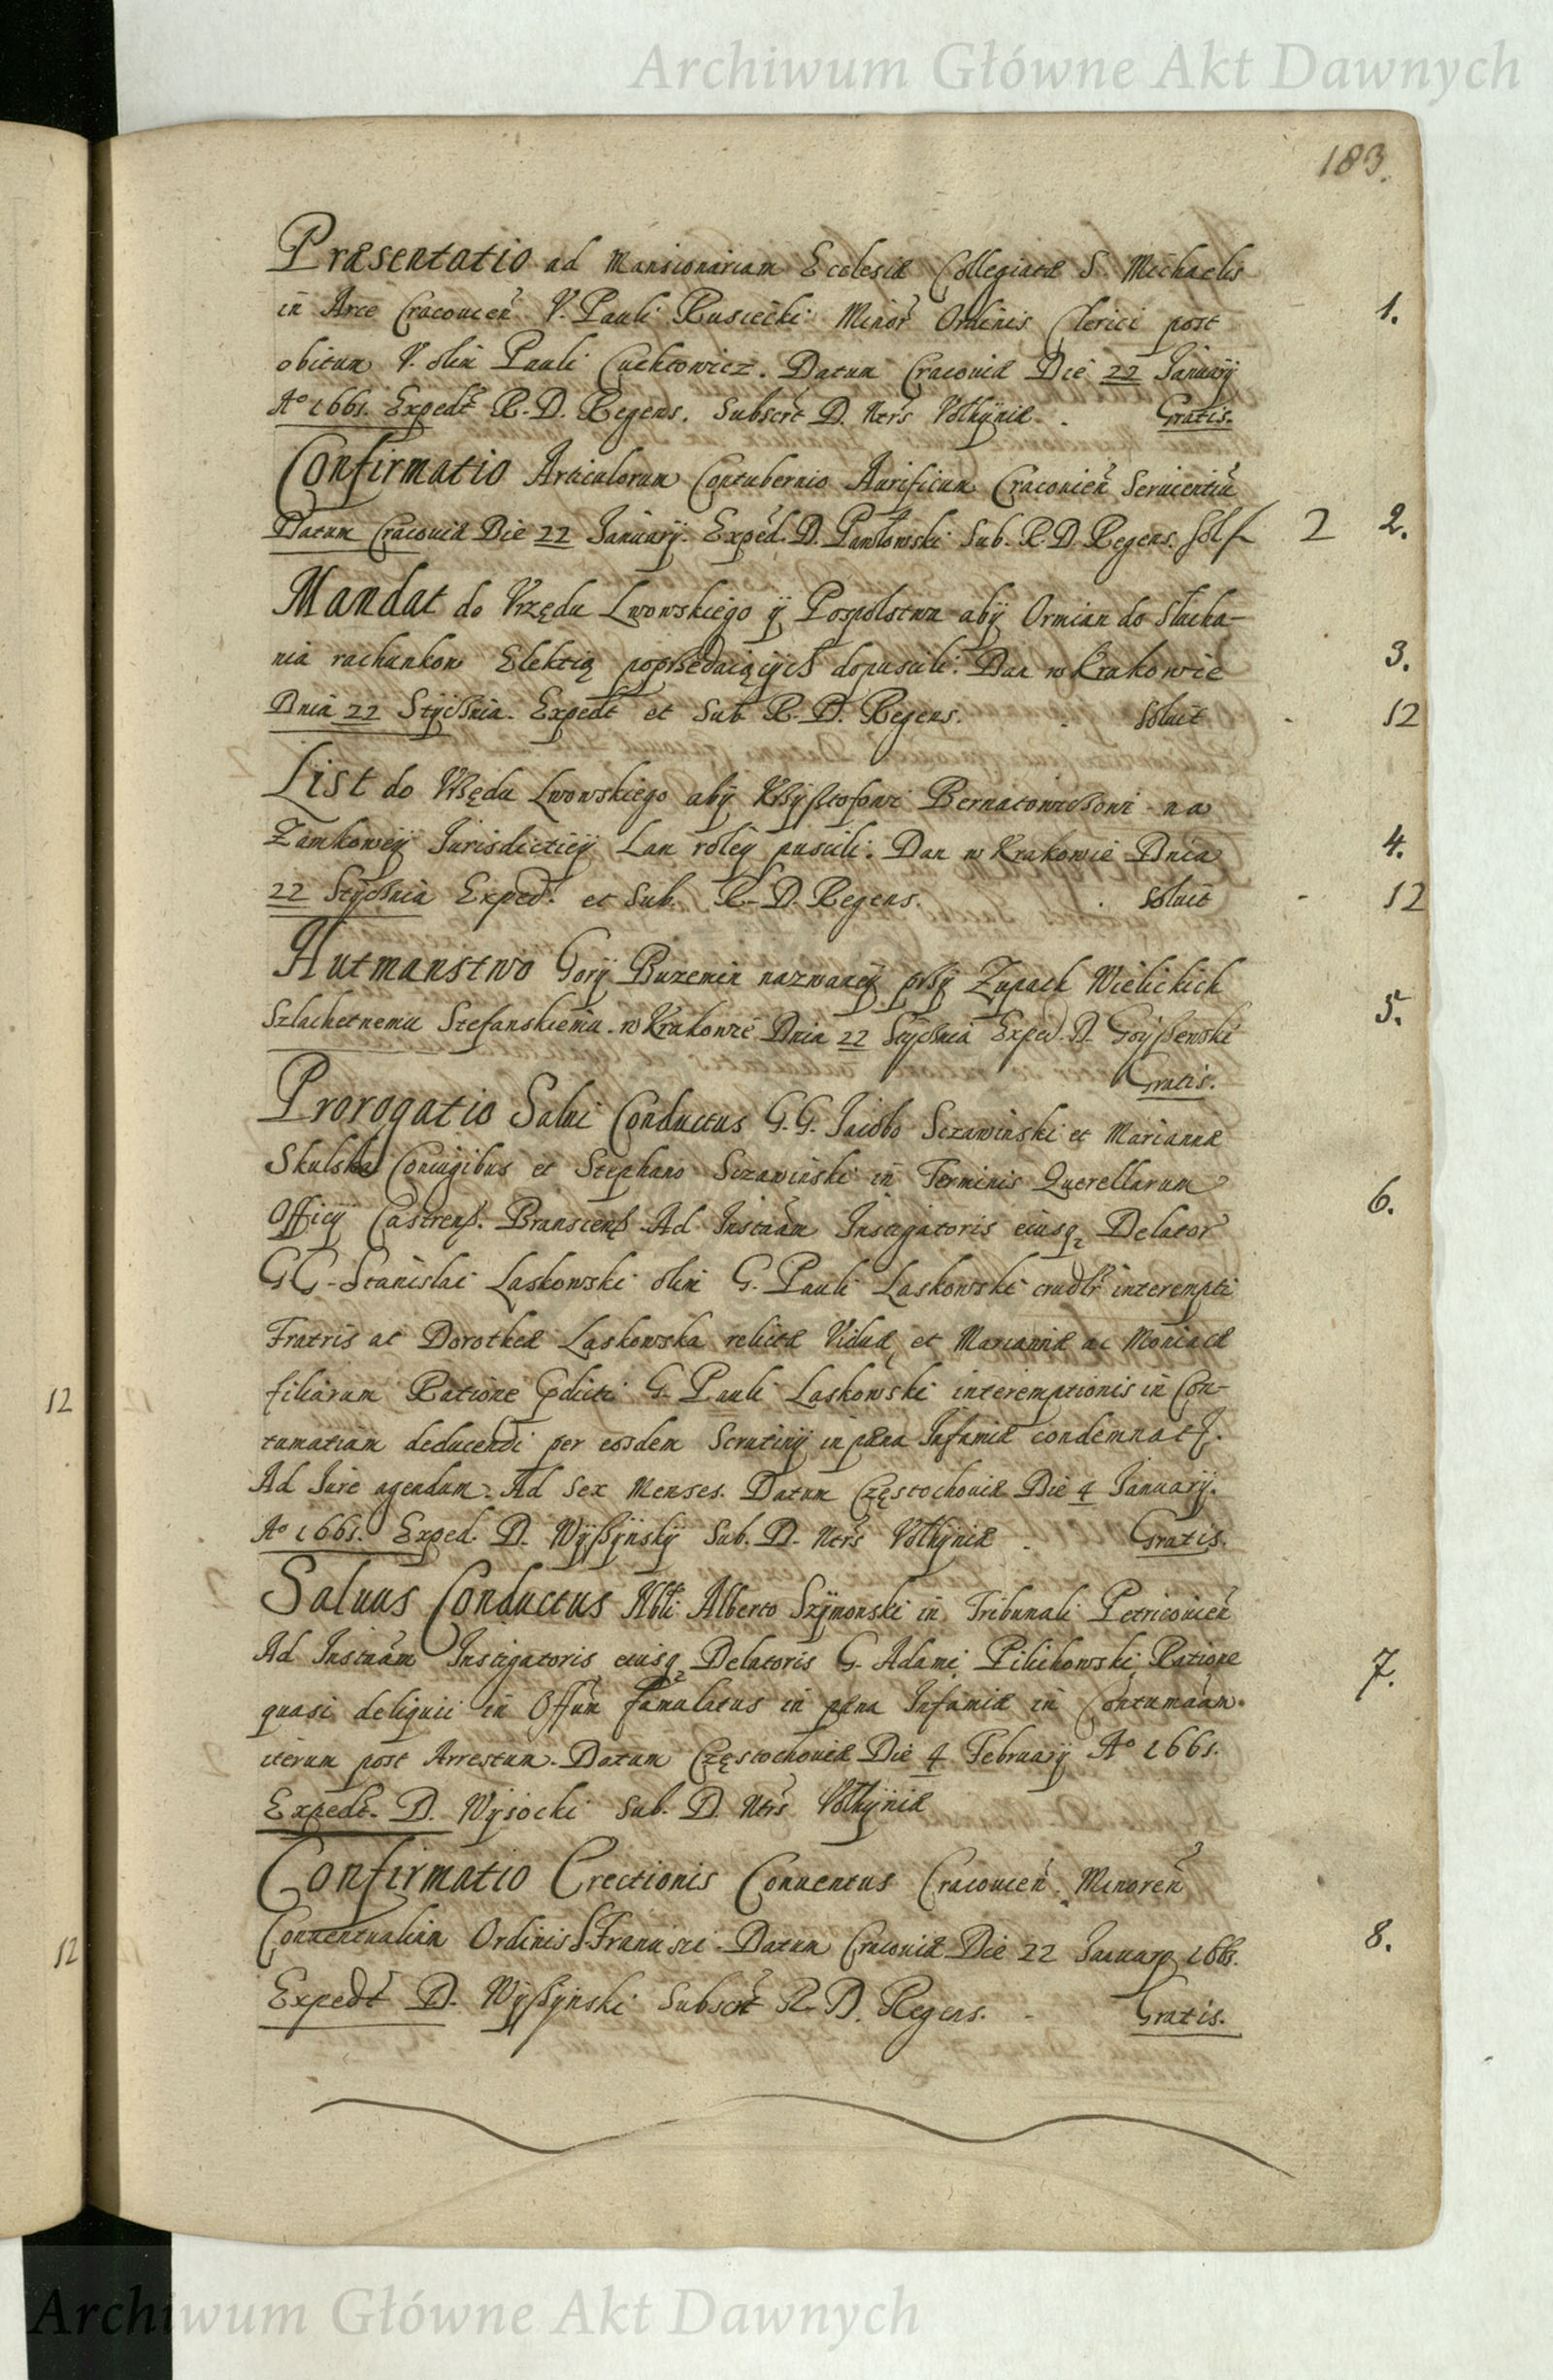 Archiwum Główne Akt Dawnych
183.
Præsentatio ad Mansionariam Ecclesiæ Collegiatæ S. Michaelis
in Arce Cracouien̄ V. Pauli Rusiecki Minor̄ Ordinis Clerici post
1.
obitum V. olim Pauli Cuchtowicz. Datum Cracouiæ Die 22 January
Aº 1661. Exped̄t R. D. Regens. Subscr̄t D. Nt̄rs Volhyniæ. Gratis.
Confirmatio Articulorum Contubernio Aurificum Cracouien̄ Seruientiū
Datum Cracouiæ Die 22 January. Exped. D. Pawłowski Sub. R. D. Regens. Sol f 2
2.
Mandat do Vrzędu Lwowskiego ÿ Pospolstwa abÿ Ormian do słucha-
nia rachunkow Elektią poprzedaiącÿch dopuscili. Dan w Krakowie
3.
Dnia 22 Stÿcznia. Exped̄t et Sub R. D. Regens. Soluit - 12
List do Vrzędu Lwowskiego abÿ Krzÿsztofowi Bernatowiczowi na
Zamkoweÿ Jurisdictieÿ Lan roleÿ puscili. Dan w Krakowie Dnia
4.
22 Stÿcznia Exped. et Sub. R. D. Regens. Soluit - 12
Hutmanstwo Gorÿ Buzenin nazwaneÿ przÿ Zupach Wielickich
5.
Szlachetnemu Stefanskiemu w Krakowie Dnia 22 Stÿcznia Exped. D. Goÿszewski
Gratis.
Prorogatio Salui Conductus G.G. Jacobo Sczawinski et Mariannæ
Skulska Coniugibus et Stephano Sczawinski in Terminis Querellarum
6.
Officÿ Castrenß. Branscenß Ad Instān̄am Instigatoris eiusq₃ Delator̄
GG. Stanislai Laskowski olim G. Pauli Laskowski crudlr̄ interempti
Fratris ac Dorotheæ Laskowska relictæ Viduæ, et Mariannæ ac Moniacæ
filiarum Ratione pdicti G. Pauli Laskowski interemptionis in Con-
12
tumatiam deducendi per eosdem Scrutinÿ in pæna Infamiæ condemnatæ.
Ad Jure agendum. Ad Sex Menses. Datum Częstochouiæ Die 4 Januarÿ.
Aº 1661. Exped. D. Wÿszÿnskÿ Sub. D. Nt̄rs Volhyniæ. Gratis.
Saluus Conductus Nbli Alberto Szÿmonski in Tribunali Petricouien̄
Ad Instn̄am Instigatoris eiusq₃ Delatoris G. Adami Pilichowski Ratione
7.
quasi deliquii in Off̄um famulatus in pæna Infamiæ in Contumāam
iterum post Arrestum. Datum Częstochouiæ Die 4 Februarÿ Aº 1661.
Exped̄t. D. Wÿsocki Sub. D. Nt̄rs Volhÿniæ
Confirmatio Erectionis Conuentus Cracouien̄. Minoren̄
Conuentualium Ordinis S. Francisci. Datum Cracouiæ Die 22 January 1661.
8.
12
Exped̄t D. Wÿszÿnski Subscr̄t R. D. Regens. Gratis.
Archiwum Główne Akt Dawnych